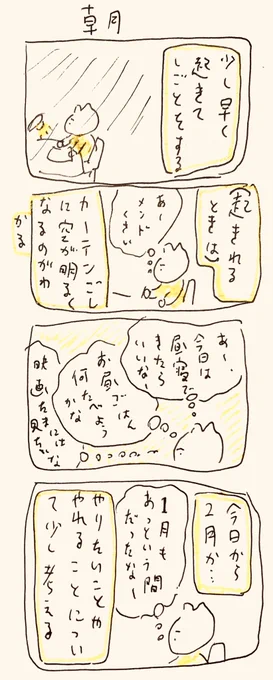 朝
少し早く
起きて
しごとをする
(起きれる
ときは)
あ〜
メンド
くさい
カーテンごし
に空が明るく
なるのがわ
かる
あー、
今日は
昼寝で
きたら
いいな〜
お昼ごはん
何たべよう
かな
映画たまには
今日から
2月か…
1月も
あっという間
だったかな〜
やりたいことや
やれることについ
て少し考える